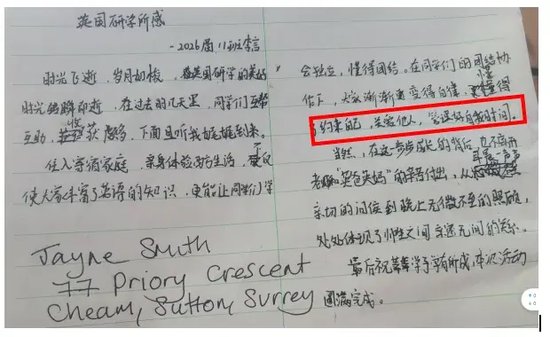 英国研学所感
-2026届11班李言
时光飞逝,岁月如梭,英国研学的美好
时光转瞬即逝,在过去的几天里,同学们互帮
互助,收获颇多,下面且听我娓娓到来。
住入寄宿家庭,亲身体验西方生活,不仅
使大家丰富了英语的知识,更能让同学们学
Jayne Smith
77 Priory Crescent
Cheam, Sutton, Surrey
会独立,懂得团结。在同学们的团结协
作下,大家渐渐变得自律,懂得
了约束自己,关爱他人,管理好自我时间。
当然,在这步步成长的背后,也离不开
老师的辛勤付出,从
亲切的问候到晚上无微不至的照顾,
处处体现了师生之间亲密无间的关系。
最后祝莘莘学子学有所成,本次活动
圆满完成。